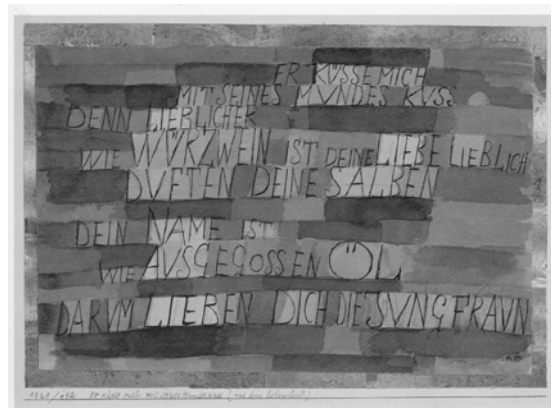 ER KÜSSE MICH
MIT SEINES MUNDES KUSS
DENN LIEBLICHER
WIE WÜRZWEIN IST DEINE LIEBE LIEBLICH
DUFTEN DEINE SALBEN
DEIN NAME IST
WIE AUSGEGOSSEN ÖL
DARUM LIEBEN DICH DIE JUNGFRAUN
1921/